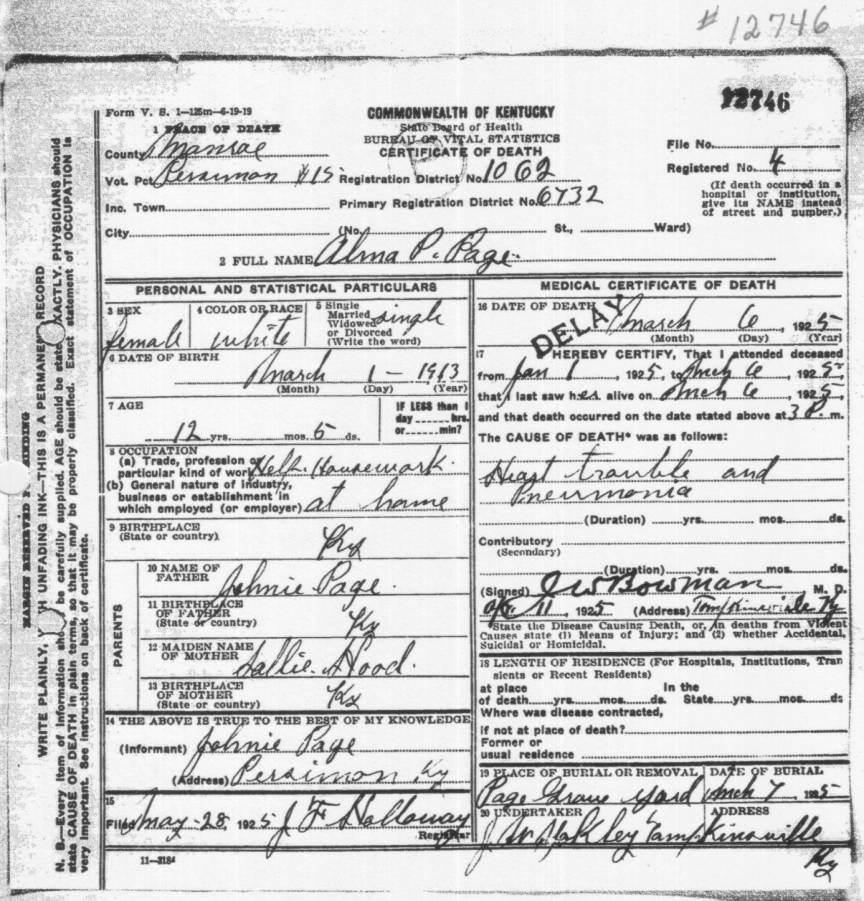 # 12746
12746
Form V. S. 1—125m—6-19-19
COMMONWEALTH OF KENTUCKY
State Board of Health
BUREAU OF VITAL STATISTICS
CERTIFICATE OF DEATH
1 PLACE OF DEATH
County Monroe
Vot. Pct. Persimon #15
Inc. Town
City
Registration District No. 1062
Primary Registration District No. 6732
(No. St., Ward)
File No.
Registered No. 4
(If death occurred in a
hospital or institution,
give its NAME instead
of street and number.)
2 FULL NAME Alma P. Page
PERSONAL AND STATISTICAL PARTICULARS
3 SEX female
4 COLOR OR RACE white
5 Single
Married
Widowed
or Divorced
(Write the word) single
6 DATE OF BIRTH
March 1 - 1913
(Month) (Day) (Year)
7 AGE
12 yrs. mos. 5 ds.
IF LESS than 1
day hrs.
or min?
8 OCCUPATION
(a) Trade, profession or
particular kind of work Help Housework
(b) General nature of industry,
business or establishment in
which employed (or employer) at home
9 BIRTHPLACE
(State or country) Ky
PARENTS
10 NAME OF
FATHER Johnie Page
11 BIRTHPLACE
OF FATHER
(State or country) Ky
12 MAIDEN NAME
OF MOTHER Sallie Hood
13 BIRTHPLACE
OF MOTHER
(State or country) Ky
14 THE ABOVE IS TRUE TO THE BEST OF MY KNOWLEDGE
(Informant) Johnie Page
(Address) Persimon Ky
15
Filed May-28, 1925 J F Holloway
Registrar
11—3184
MEDICAL CERTIFICATE OF DEATH
16 DATE OF DEATH March 6, 1925
(Month) (Day) (Year)
DELAY
17 HEREBY CERTIFY, That I attended deceased
from Jan 1, 1925, to Mch 6, 1925,
that I last saw her alive on Mch 6, 1925,
and that death occurred on the date stated above at 3 P. m.
The CAUSE OF DEATH* was as follows:
Heart trouble and
Pneumonia
(Duration) yrs. mos. ds.
Contributory
(Secondary)
(Duration) yrs. mos. ds.
(Signed) J W Bowman M. D.
11, 1925 (Address) Tompkinsville Ky
State the Disease Causing Death, or, in deaths from Violent
Causes state (1) Means of Injury; and (2) whether Accidental,
Suicidal or Homicidal.
18 LENGTH OF RESIDENCE (For Hospitals, Institutions, Tran
sients or Recent Residents)
at place In the
of death yrs. mos. ds. State yrs. mos. ds
Where was disease contracted,
if not at place of death?
Former or
usual residence
19 PLACE OF BURIAL OR REMOVAL DATE OF BURIAL
Page Grave yard Mch 7 1925
20 UNDERTAKER ADDRESS
J W Tompkinsville
Ky
MARGIN RESERVED FOR BINDING
WRITE PLAINLY, WITH UNFADING INK—THIS IS A PERMANENT RECORD
N. B.—Every item of information should be carefully supplied. AGE should be stated EXACTLY. PHYSICIANS should
state CAUSE OF DEATH in plain terms, so that it may be properly classified. Exact statement of OCCUPATION is
very important. See instructions on back of certificate.